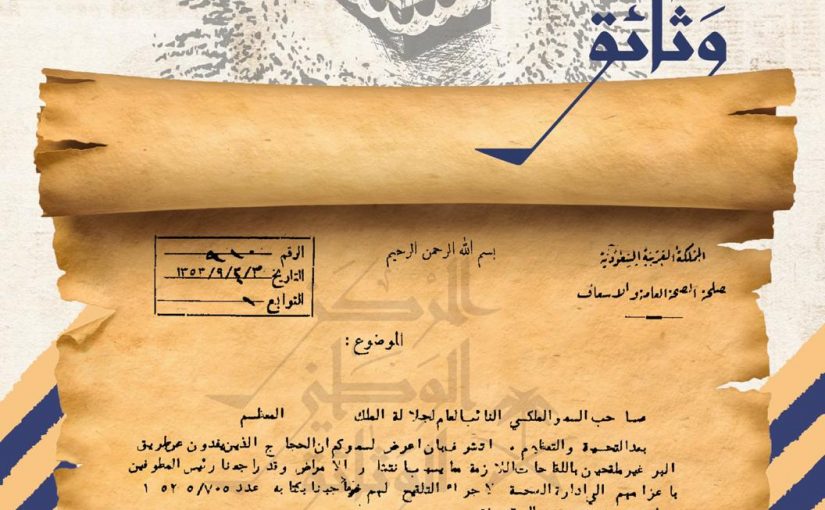 وَثائق
المملكة العربية السعودية
مصلحة الصحة العامة والاسعاف
بسم الله الرحمن الرحيم
الرقم
التاريخ ١٣٥٣/٩/٢/٣
التوابع ١
الموضوع :
المركز
الوطني
صاحب السمو الملكي النائب العام لجلالة الملك المعظم
بعد التحية والتعظيم . اتشرف بان اعرض لسموكم ان الحجاج الذين يفدون عن طريق
البر غير ملقحين باللقاحات اللازمة مما يسبب انتشار الامراض وقد راجعنا رئيس المطوفين
باعزامهم الى ادارة الصحة لاجراء التلقيح لهم فاجابنا بكتابه عدد ٥٢٥/٧٠٥ ١